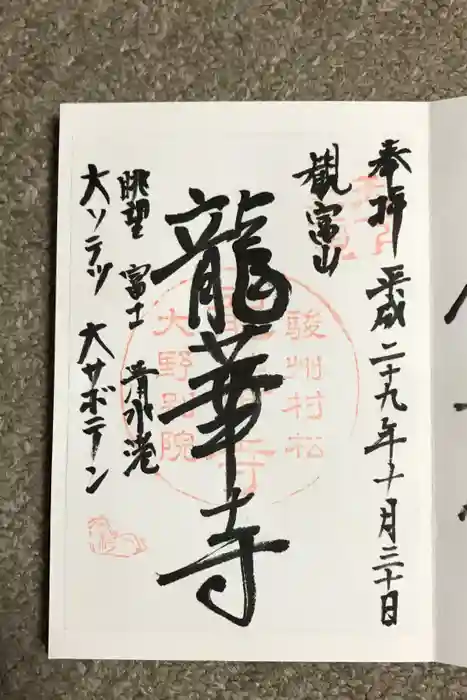 奉拝 平成二十九年十月三十日
観富山
龍華寺
眺望 富士 清水港
大ソテツ 大サボテン
駿州村松
大野別院